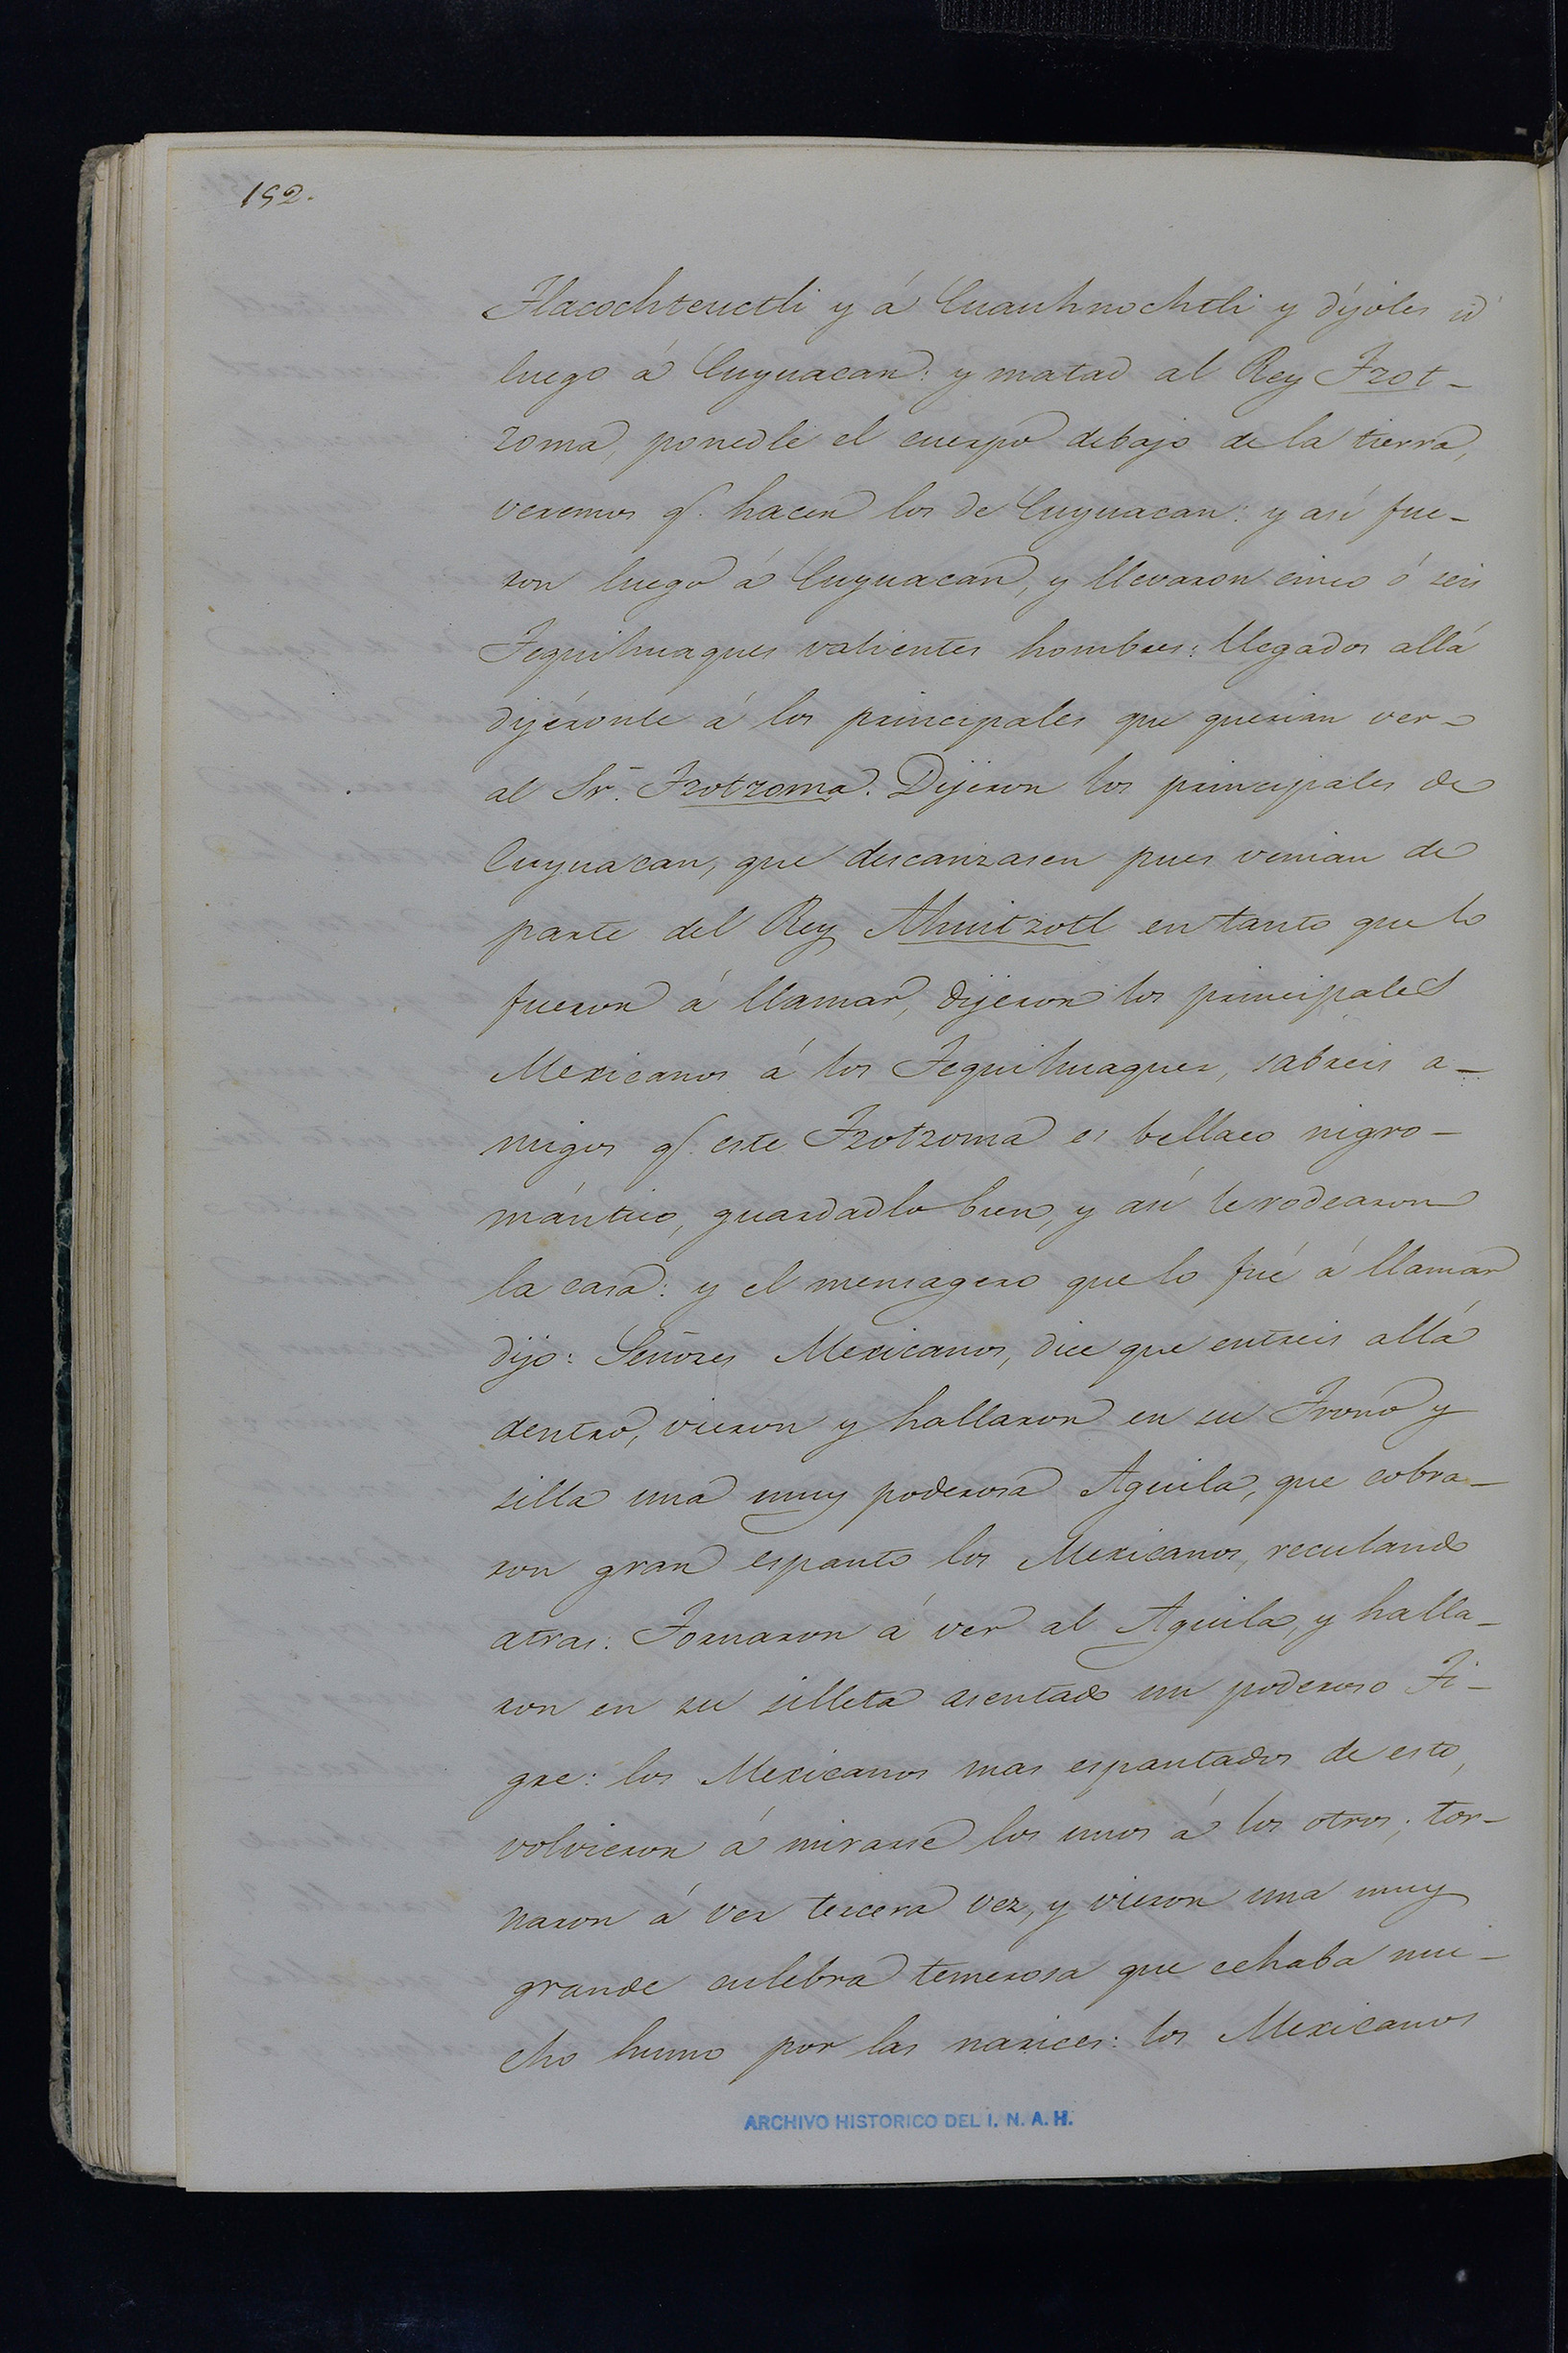 192.
Tlacochteuctli y á Cuauhnochtli y díjoles id
luego á Cuyuacan: y matad al Rey Tzot-
zoma, ponedle el cuerpo debajo de la tierra,
veremos q. hacen los de Cuyuacan: y así fue-
ron luego á Cuyuacan, y llevaron cinco ó seis
Tequihuaques valientes hombres: llegados allá
dijéronle á los principales que querian ver
al Sr. Tzotzoma. Dijeron los principales de
Cuyuacan, que descanzasen pues venian de
parte del Rey Ahuitzotl en tanto que lo
fueron á llamar, dijeron los principales
Mexicanos á los Tequihuaques, sabreis a-
migos q. este Tzotzoma es bellaco nigro-
mántico, guardadlo bien, y así le rodearon
la casa: y el mensagero que lo fué á llamar
dijo: Señores Mexicanos, dice que entreis allá
dentro, vieron y hallaron en su Trono y
silla una muy poderosa Aguila, que cobra-
ron gran espanto los Mexicanos, reculando
atras: Tornaron á ver al Aguila, y halla-
ron en su silleta asentado un poderoso Ti-
gre: los Mexicanos mas espantados de esto,
volvieron á mirarse los unos á los otros; tor-
naron á ver tercera vez, y vieron una muy
grande culebra temerosa que echaba mu-
cho humo por las narices: los Mexicanos
ARCHIVO HISTORICO DEL I. N. A. H.